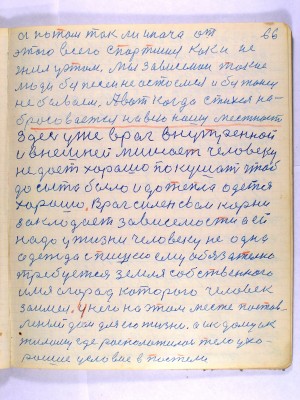 66
а потом так ли иначе от
этого всего спортишся как и не
жил утром. Мы зависемои такие
люди бу песеи не остоемся и бу тоже
не бываем. А вот когда стихея на-
бросоваеться на вою нашу местност
Здес уже враг внутренной
и внешней мишает человеку
не дает харашо покушат чтоб
до сыта было и до тепла одется
харашо, Враг силен свои карни
закладает зависемости а ей
надо у жизни человеку не одна
одежда с пищию ему обязателно
требуется земля собственого
имя спарад которого человек
занимел. У него на этом месте постав-
леный дом для его жизни. а и к дому и к
жилищу где росположился тело ухо-
рошие условие в постели